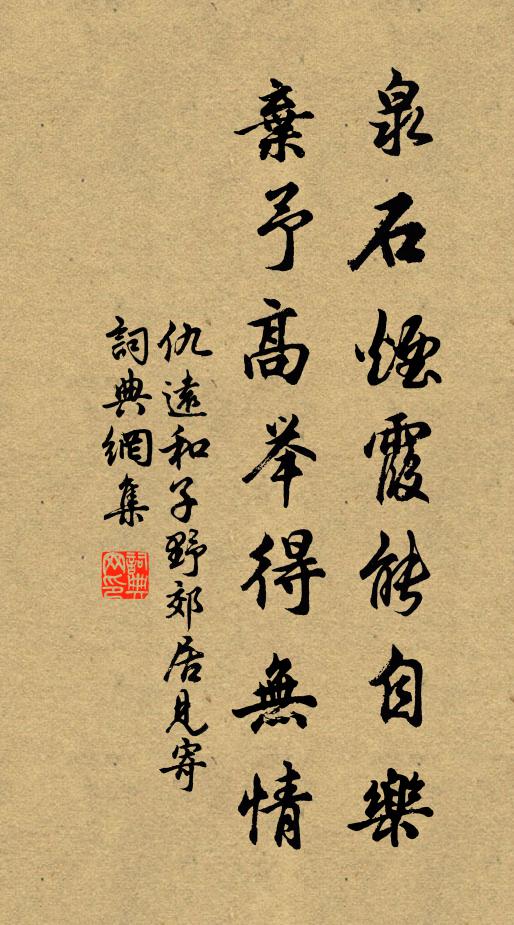 泉石煙霞能自樂
棄予高举得無情
仇遠和子野郊居見寄
詞典網集
詞典网印